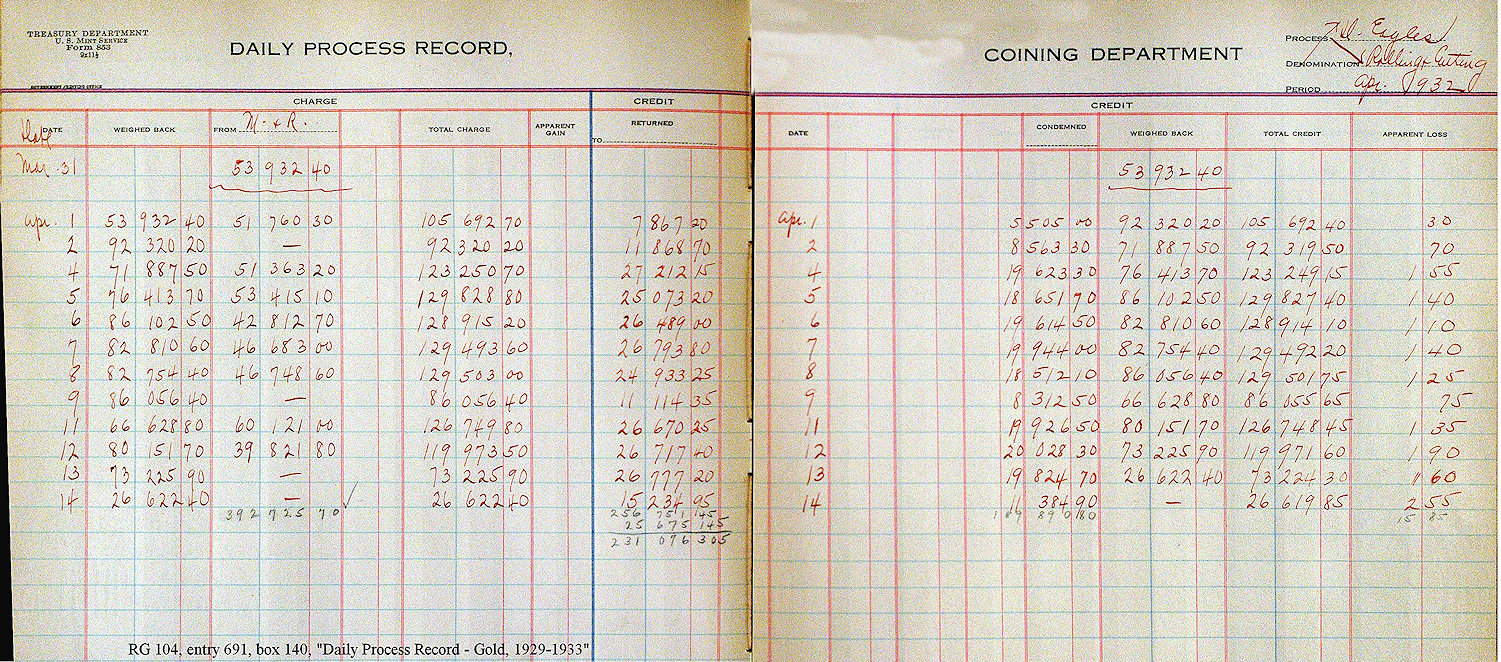 TREASURY DEPARTMENT
U. S. MINT SERVICE
Form 853
9x11½
DAILY PROCESS RECORD,
COINING DEPARTMENT
PROCESS Eagles
DENOMINATION Rolling & Cutting
PERIOD Apr. 1932
CHARGE CREDIT CREDIT
DATE WEIGHED BACK FROM M. & R. TOTAL CHARGE APPARENT GAIN RETURNED TO DATE CONDEMNED WEIGHED BACK TOTAL CREDIT APPARENT LOSS
Mar. 31 53 932 40 53 932 40
Apr. 1 53 932 40 51 760 30 105 692 70 7 867 20 Apr. 1 5 505 00 92 320 20 105 692 40 30
2 92 320 20 — 92 320 20 11 868 70 2 8 563 30 71 887 50 92 319 50 70
4 71 887 50 51 363 20 123 250 70 27 212 15 4 19 623 30 76 413 70 123 249 15 1 55
5 76 413 70 53 415 10 129 828 80 25 073 20 5 18 651 70 86 102 50 129 827 40 1 40
6 86 102 50 42 812 70 128 915 20 26 489 00 6 19 614 50 82 810 60 128 914 10 1 10
7 82 810 60 46 683 00 129 493 60 26 793 80 7 19 944 00 82 754 40 129 492 20 1 40
8 82 754 40 46 748 60 129 503 00 24 933 25 8 18 512 10 86 056 40 129 501 75 1 25
9 86 056 40 — 86 056 40 11 114 35 9 8 312 50 66 628 80 86 055 65 75
11 66 628 80 60 121 00 126 749 80 26 670 25 11 19 926 50 80 151 70 126 748 45 1 35
12 80 151 70 39 821 80 119 973 50 26 717 40 12 20 028 30 73 225 90 119 971 60 1 90
13 73 225 90 — 73 225 90 26 777 20 13 19 824 70 26 622 40 73 224 30 1 60
14 26 622 40 — 26 622 40 15 234 95 14 11 384 90 — 26 619 85 2 55
392 725 70 ✓ 256 751 45 189 890 80 15 85
25 675 145
231 076 305
RG 104, entry 691, box 140, "Daily Process Record - Gold, 1929-1933"